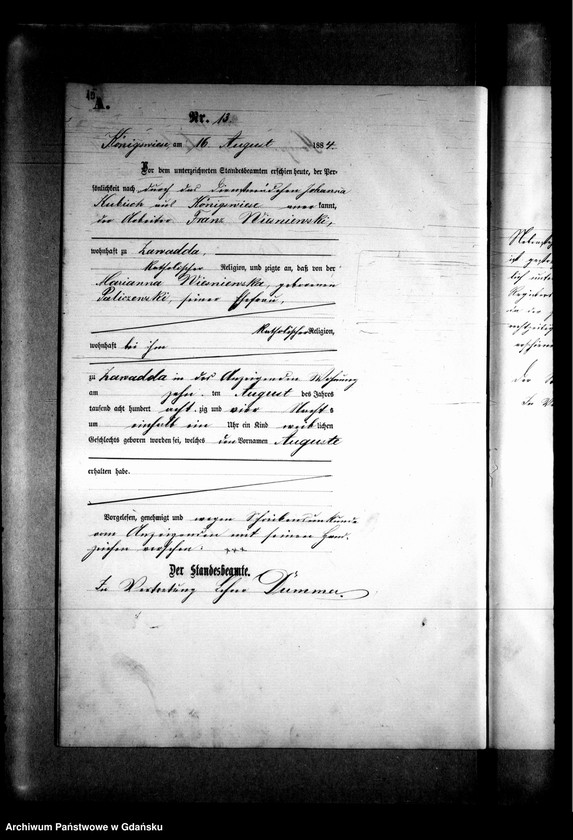 A.
Nr. 13.
Königswiese am 16 August 1884.
Vor dem unterzeichneten Standesbeamten erschien heute, der Per-
sönlichkeit nach durch das Dienstmädchen Johanna
Kubich aus Königswiese anerkannt,
der Arbeiter Franz Wisniewski,
wohnhaft zu Zawadda,
katholischer Religion, und zeigte an, daß von der
Marianna Wisniewska, geborenen
Paliczewski, seiner Ehefrau,
katholischer Religion,
wohnhaft bei ihm
zu Zawadda in des Anzeigenden Wohnung
am zehn ten August des Jahres
tausend acht hundert acht zig und vier Nachts
um einhalb ein Uhr ein Kind weib lichen
Geschlechts geboren worden sei, welches den Vornamen Auguste
erhalten habe.
Vorgelesen, genehmigt und wegen Schreibensunkunde
vom Anzeigenden mit seinen Hand-
zeichen versehen: xxx
Der Standesbeamte.
In Vertretung Dümmer.
Archiwum Państwowe w Gdańsku